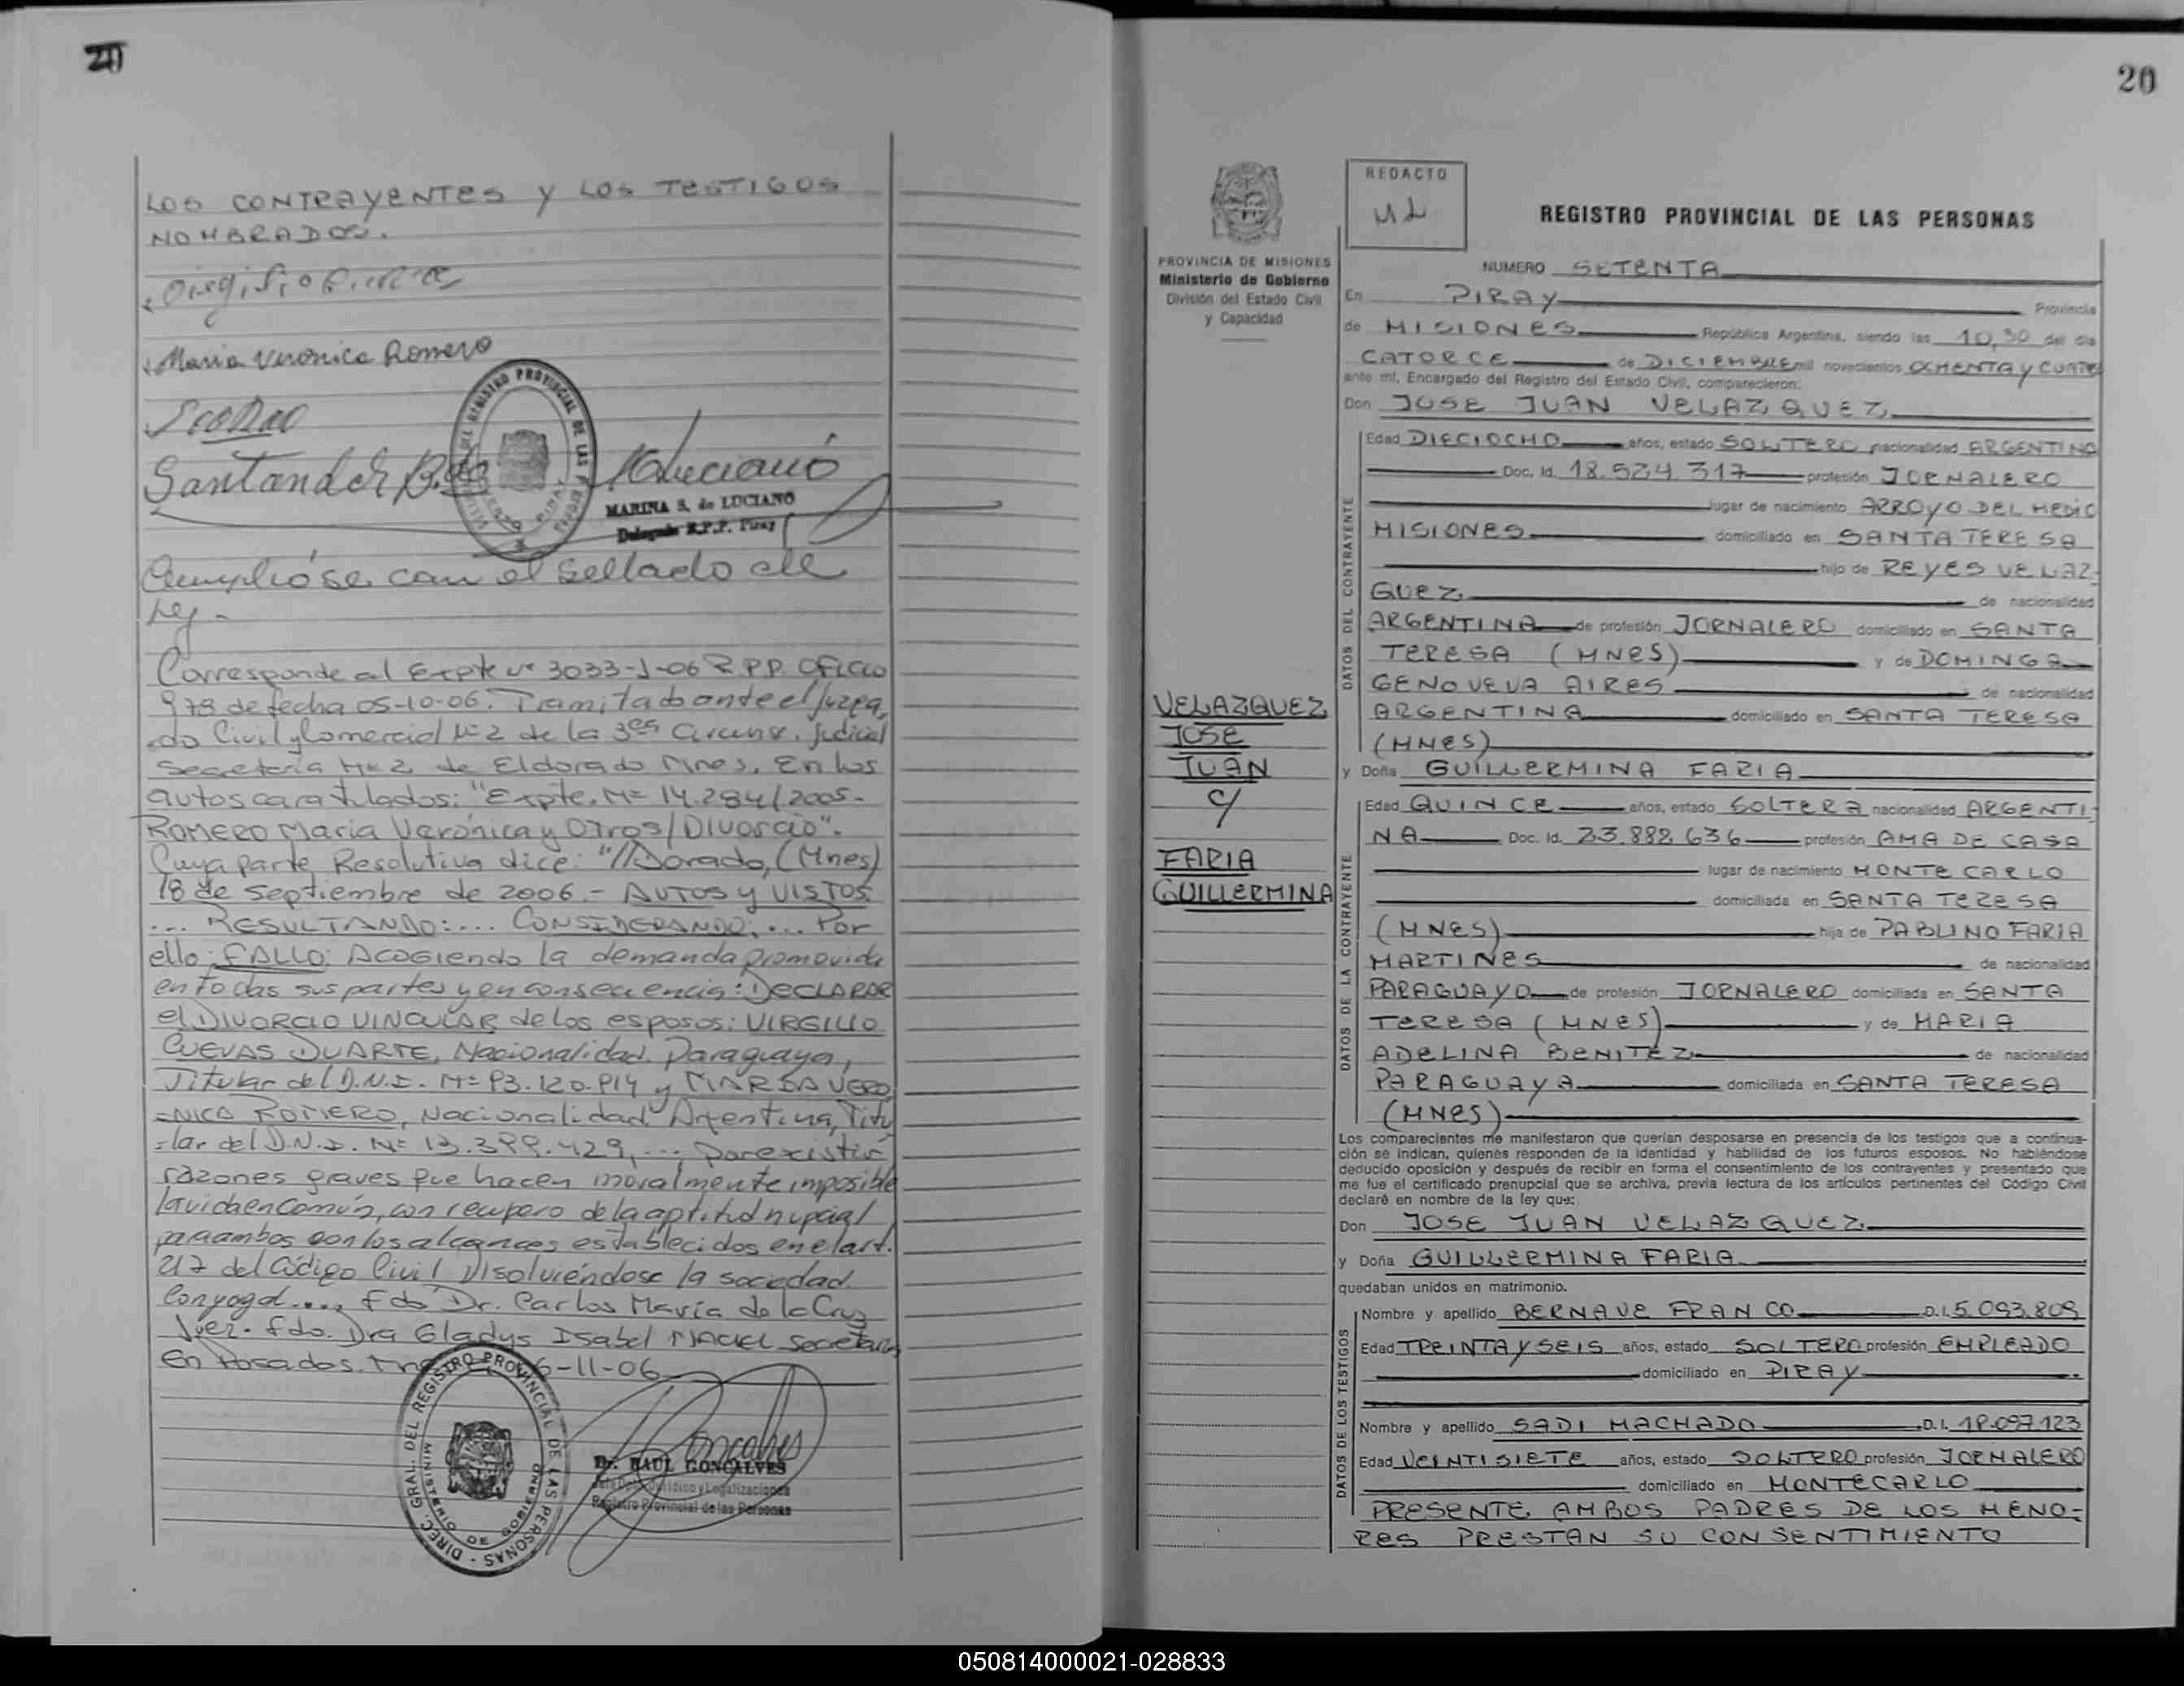 20
LOS CONTRAYENTES Y LOS TESTIGOS
NOMBRADOS.
Maria Veronica Romero
Santander
MARINA S. de LUCIANO
Delegada R.P.P. Piray
Cumplióse con el sellado de
Ley -
Corresponde al Expte Nº 3033-J-06 R.P.P. OFICIO
978 de fecha 05-10-06. Tramitado ante el Juzga
do Civil y Comercial Nº 2 de la 3era Circuns. Judicial
Secretaría Nº 2 de Eldorado Mnes. En los
autos caratulados: "Expte. Nº 14.284/2005-
ROMERO Maria Verónica y Otros/Divorcio".
Cuya parte Resolutiva dice: "//Dorado, (Mnes)
18 de septiembre de 2006.- AUTOS y VISTOS:
... RESULTANDO:... CONSIDERANDO:... Por
ello: FALLO: Acogiendo la demanda promovida
en todas sus partes y en consecuencia: DECLARAR
el DIVORCIO VINCULAR de los esposos: VIRGILIO
CUEVAS DUARTE, Nacionalidad Paraguaya,
Titular del D.N.I. Nº 93.120.914 y MARIA VERO
=NICA ROMERO, Nacionalidad Argentina, Titu
=lar del D.N.I. Nº 13.399.429,... por existir
razones graves que hacen moralmente imposible
la vida en Común, con recupero de la aptitud nupcial
para ambos con los alcances establecidos en el art.
217 del Código Civil Disolviéndose la sociedad
Conyugal.... Fdo Dr. Carlos María de la Cruz
Juez. Fdo. Dra Gladys Isabel MACIEL Secretaria
En Posadas. 6-11-06
DIREC. GRAL. DEL REGISTRO PROVINCIAL DE LAS PERSONAS - MINISTERIO DE GOBIERNO
Dr. RAUL GONCALVES
Registro Provincial de las Personas
20
PROVINCIA DE MISIONES
Ministerio de Gobierno
División del Estado Civil
y Capacidad
REDACTO
ML
REGISTRO PROVINCIAL DE LAS PERSONAS
NUMERO SETENTA
En PIRAY Provincia
de MISIONES República Argentina, siendo las 10,30 del día
CATORCE de DICIEMBRE mil novecientos OCHENTA Y CUATRO
ante mí, Encargado del Registro del Estado Civil, comparecieron:
Don JOSE JUAN VELAZQUEZ
DATOS DEL CONTRAYENTE
Edad DIECIOCHO años, estado SOLTERO nacionalidad ARGENTINO
Doc. Id. 18.524.317 profesión JORNALERO
lugar de nacimiento ARROYO DEL MEDIO
MISIONES domiciliado en SANTA TERESA
hijo de REYES VELAZ-
QUEZ de nacionalidad
ARGENTINA de profesión JORNALERO domiciliado en SANTA
TERESA (MNES) y de DOMINGA
GENOVEVA AIRES de nacionalidad
ARGENTINA domiciliado en SANTA TERESA
(MNES)
VELAZQUEZ
JOSE
JUAN
C/
FARIA
GUILLERMINA
y Doña GUILLERMINA FARIA
DATOS DE LA CONTRAYENTE
Edad QUINCE años, estado SOLTERA nacionalidad ARGENTI-
NA Doc. Id. 23.882.636 profesión AMA DE CASA
lugar de nacimiento MONTE CARLO
domiciliada en SANTA TERESA
(MNES) hija de PABLINO FARIA
MARTINES de nacionalidad
PARAGUAYO de profesión JORNALERO domiciliada en SANTA
TERESA (MNES) y de MARIA
ADELINA BENITEZ de nacionalidad
PARAGUAYA domiciliada en SANTA TERESA
(MNES)
Los comparecientes me manifestaron que querían desposarse en presencia de los testigos que a continua-
ción se indican, quienes responden de la identidad y habilidad de los futuros esposos. No habiéndose
deducido oposición y después de recibir en forma el consentimiento de los contrayentes y presentado que
me fue el certificado prenupcial que se archiva, previa lectura de los artículos pertinentes del Código Civil
declaré en nombre de la ley que:
Don JOSE JUAN VELAZQUEZ
y Doña GUILLERMINA FARIA
quedaban unidos en matrimonio.
DATOS DE LOS TESTIGOS
Nombre y apellido BERNAVE FRANCO D.I. 5.093.809
Edad TREINTA Y SEIS años, estado SOLTERO profesión EMPLEADO
domiciliado en PIRAY
Nombre y apellido SADI MACHADO D.I. 18.097.123
Edad VEINTISIETE años, estado SOLTERO profesión JORNALERO
domiciliado en MONTECARLO
PRESENTE AMBOS PADRES DE LOS MENO-
RES PRESTAN SU CONSENTIMIENTO
050814000021-028833